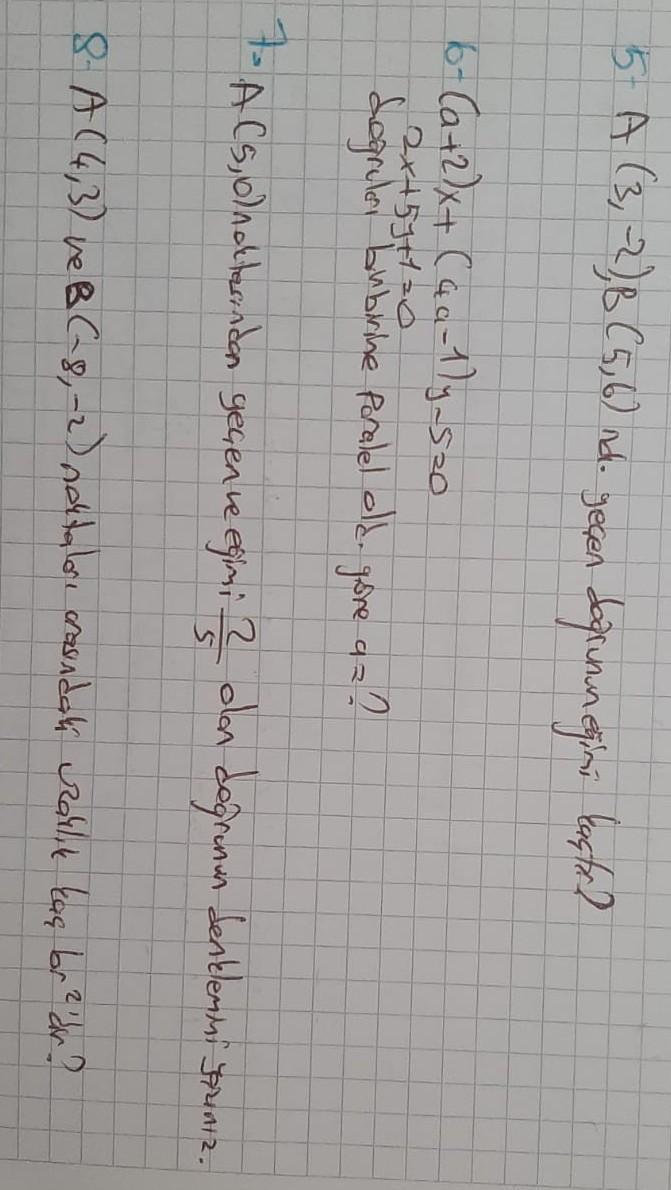 5- A (3,-2), B (5,6) nok. geçen doğrunun eğimi kaçtır?
6- (a+2)x + (4a-1)y-5=0
2x+5y+1=0
doğruları birbirine paralel old. göre a=?
7- A(5,0) noktasından geçen ve eğimi 2/5 olan doğrunun denklemini yazınız.
8- A(4,3) ve B(-8,-2) noktaları arasındaki uzaklık kaç br²'dir?